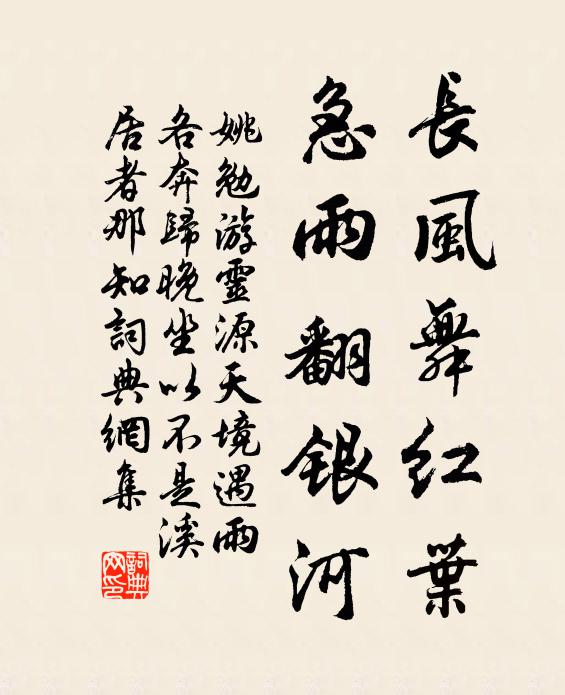 長風舞紅葉
急雨翻銀河
姚勉游靈源天境遇雨
各奔歸晚坐以不是溪
居者那知詞典網集
詞典網印